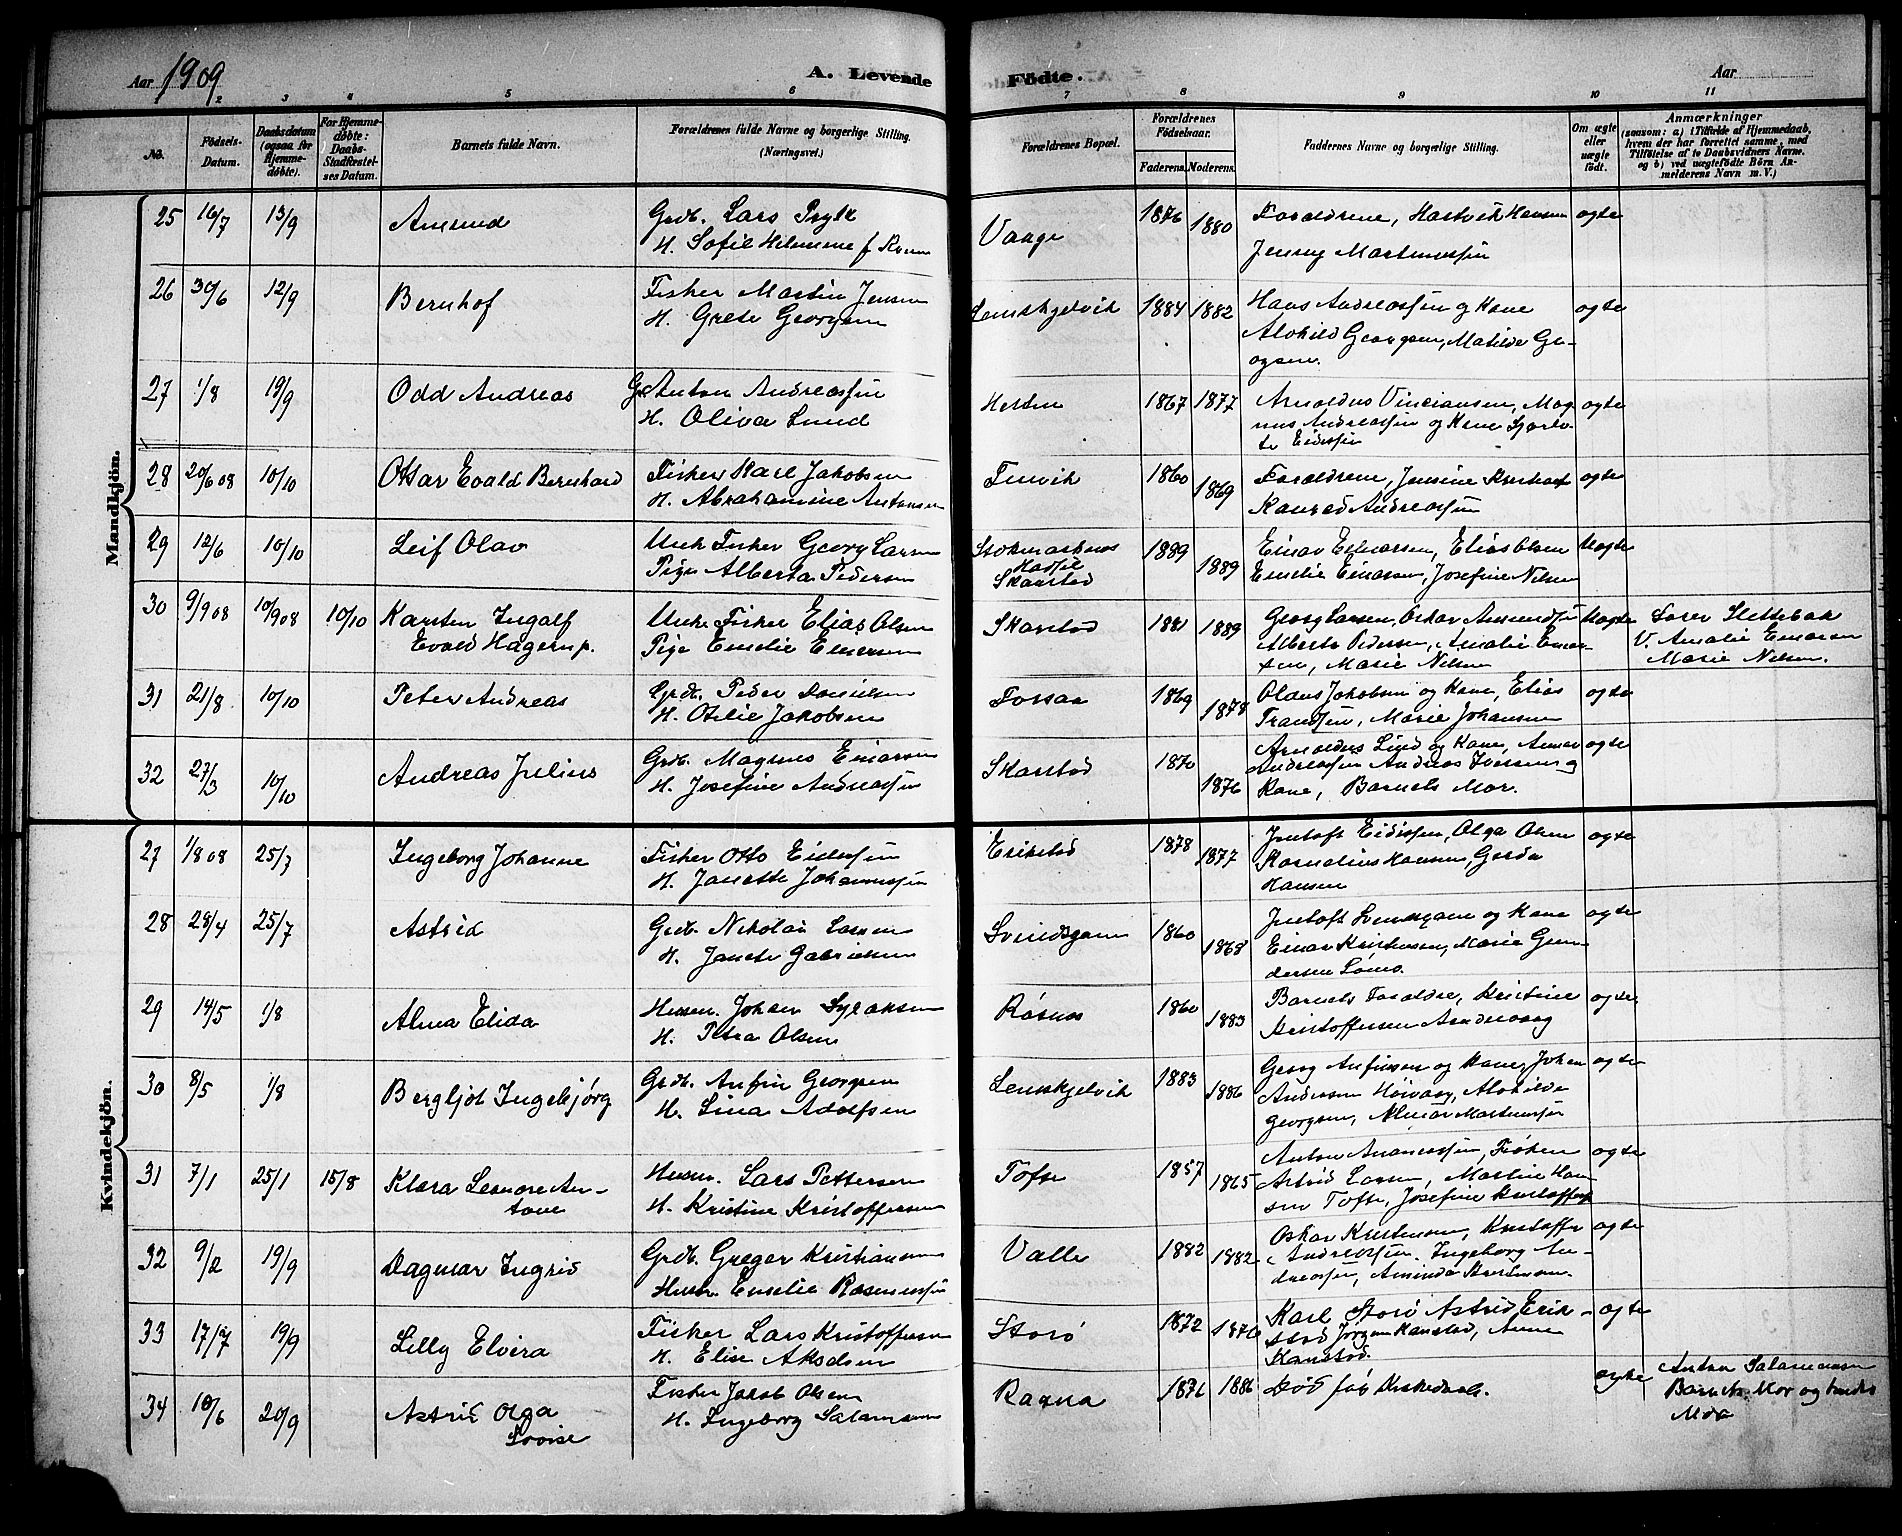 Aar 1909
A. Levende Födte.
Aar
2 3 4 5 6 7 8 9 10 11
No. Födsels-Datum. Daabsdatum (ogsaa for Hjemme-döbte). For Hjemme-döbte: Daabs-Stadfæstel-ses Datum. Barnets fulde Navn. Forældrenes fulde Navne og borgerlige Stilling. (Næringsvei.) Forældrenes Bopæl. Forældrenes Födselsaar. Faderens. Moderens. Faddernes Navne og borgerlige Stilling. Om ægte eller uægte födt. Anmærkninger (saasom: a) i Tilfælde af Hjemmedaab, hvem der har forrettet samme, med Tilföielse af to Daabsvidners Navne, og b) ved uægtefödte Börn An-melderens Navn m. V.)
Mandkjön.
25 16/7 13/9 Amund Grdb. Lars H. Sofie f. Vaage 1876 1880 Forældrene, Hartvik Hansen
Jenny Martinussen ægte
26 30/6 12/9 Bernhof Fisker Martin Jensen
H. Grete Georgsen Lemskjelvik 1884 1882 Hans Andreassen og Kone
Alvhild Georgsen, Matilde Ge-
orgsen. ægte
27 1/8 19/9 Odd Andreas G. Anton Andreassen
H. Oliva Lund 1867 1877 Arnoldus Vinciansen, Mag
nus Andreassen og Kone
Eidissen ægte
28 20/6 08 10/10 Otsar Evald Bernhard Fisker Karl Jakobsen
H. Abrahamine Antonsen 1860 1869 Forældrene, Jensine
Konrad Andreassen ægte
29 12/6 10/10 Leif Olav Unk. Fisker Georg Larsen
Pige Alberta Pedersen Stokmarknes
Hassel
Skarstad 1889 1889 Einar Einarsen, Elias Olsen
Emelie Einarsen, Josefine Nilsen Uægte
30 9/9 08 10/9 08 10/10 Karsten Ingolf
Evald Hagerup. Unk. Fisker Elias Olsen
Pige Emelie Einarsen Skarstad 1881 1889 Georg Larsen, Oskar Amundsen
Alberta Pedersen, Amalie Einar-
sen, Marie Nilsen Uægte Lærer Slettebak
V. Amalie Einarsen
Marie Nilsen.
31 21/8 10/10 Peter Andreas Grdb. Peder Danielsen
H. Otelie Jakobsen Forsaa 1869 1878 Olaus Jakobsen og Kone, Elias
Transen, Marie Johansen ægte
32 27/3 10/10 Andreas Julius Grdb. Magnus Einarsen
H. Josefine Andreassen Skarstad 1870 1876 Arnoldus Lind og Kone, Anna
Andreassen Andreas Iversen og
Kone, Barnets Mor. ægte
Kvindekjön.
27 1/8 08 25/7 Ingeborg Johanne Fisker Otto Eidissen
H. Janette Johannessen Erikstad 1878 1877 Justoft Eidissen, Olga Olsen
Kornelius Hansen, Gerda
Hansen ægte
28 28/4 25/7 Astrid Grdb. Nikolai Larsen
H. Janette Gabrielsen 1860 1868 Justoft og Kone
Einar Kristensen, Marie Gun-
dersen ægte
29 14/5 1/8 Alma Elida Husm. Johan
H. Petra Olsen Røsnes 1860 1883 Barnets Forældre, Kristine
Kristoffersen ægte
30 8/5 1/8 Bergljot Ingebjørg Grdb. Anfin Georgsen
H. Lina Adolfsen Lemskjelvik 1883 1886 Georg Anfinsen og Kone, Johan
Andersen Alvhilde
Georgsen, Martinussen ægte
31 7/1 25/1 15/8 Klara Leonore An-
tone Husm. Lars Pettersen
H. Kristine Kristoffersen Tofte 1857 1865 Anton Fisker
Astrid Larsen, Martin Han
sen Tofte, Josefine Kristoffers ægte
32 9/2 19/9 Dagmar Ingrid Grdb. Greger Kristiansen
Hustr. Emelie Rasmussen Valle 1882 1882 Oskar Kristensen, Kristoffer
Andreassen. Ingeborg An-
dreassen, Aminda Kristensen. ægte
33 17/7 19/9 Lilly Elvira Fisker Lars Kristoffersen
H. Elise Akselsen Storø 1872 1876 Karl Storø Astrid Erik-
stad Jørgen Kanstad, Anne
Kanstad. ægte
34 10/6 20/9 Astrid Olga
Lovise Fisker Jacob Olsen
H. Ingeborg Salamonsen Ramna 1876 1886 Død før Kirkedaab. ægte Anton Salamonsen
Barnets Mor og hendes
Mor